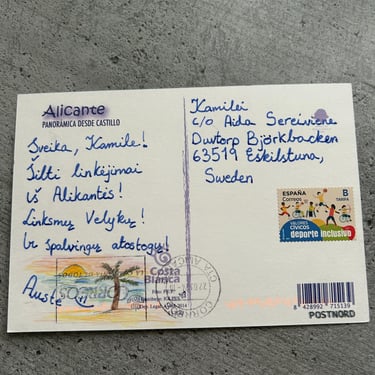 Alicante
PANORÁMICA DESDE CASTILLO
Sveika, Kamile!
Šilti linkėjimai
iš Alikantės!
Linksmų Velykų!
Ir spalvingų atostogų!
Austė
Kamilei
c/o Aida Sereivienė
Duvtorp Björkbacken
63519 Eskilstuna,
Sweden
ESPAÑA
Correos
B
TARIFA
VALORES
CÍVICOS
deporte inclusivo
Costa
Blanca
CORREOS
8 428992 715139
POSTNORD